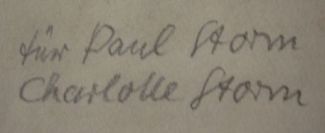 für Paul Storm
Charlotte Storm